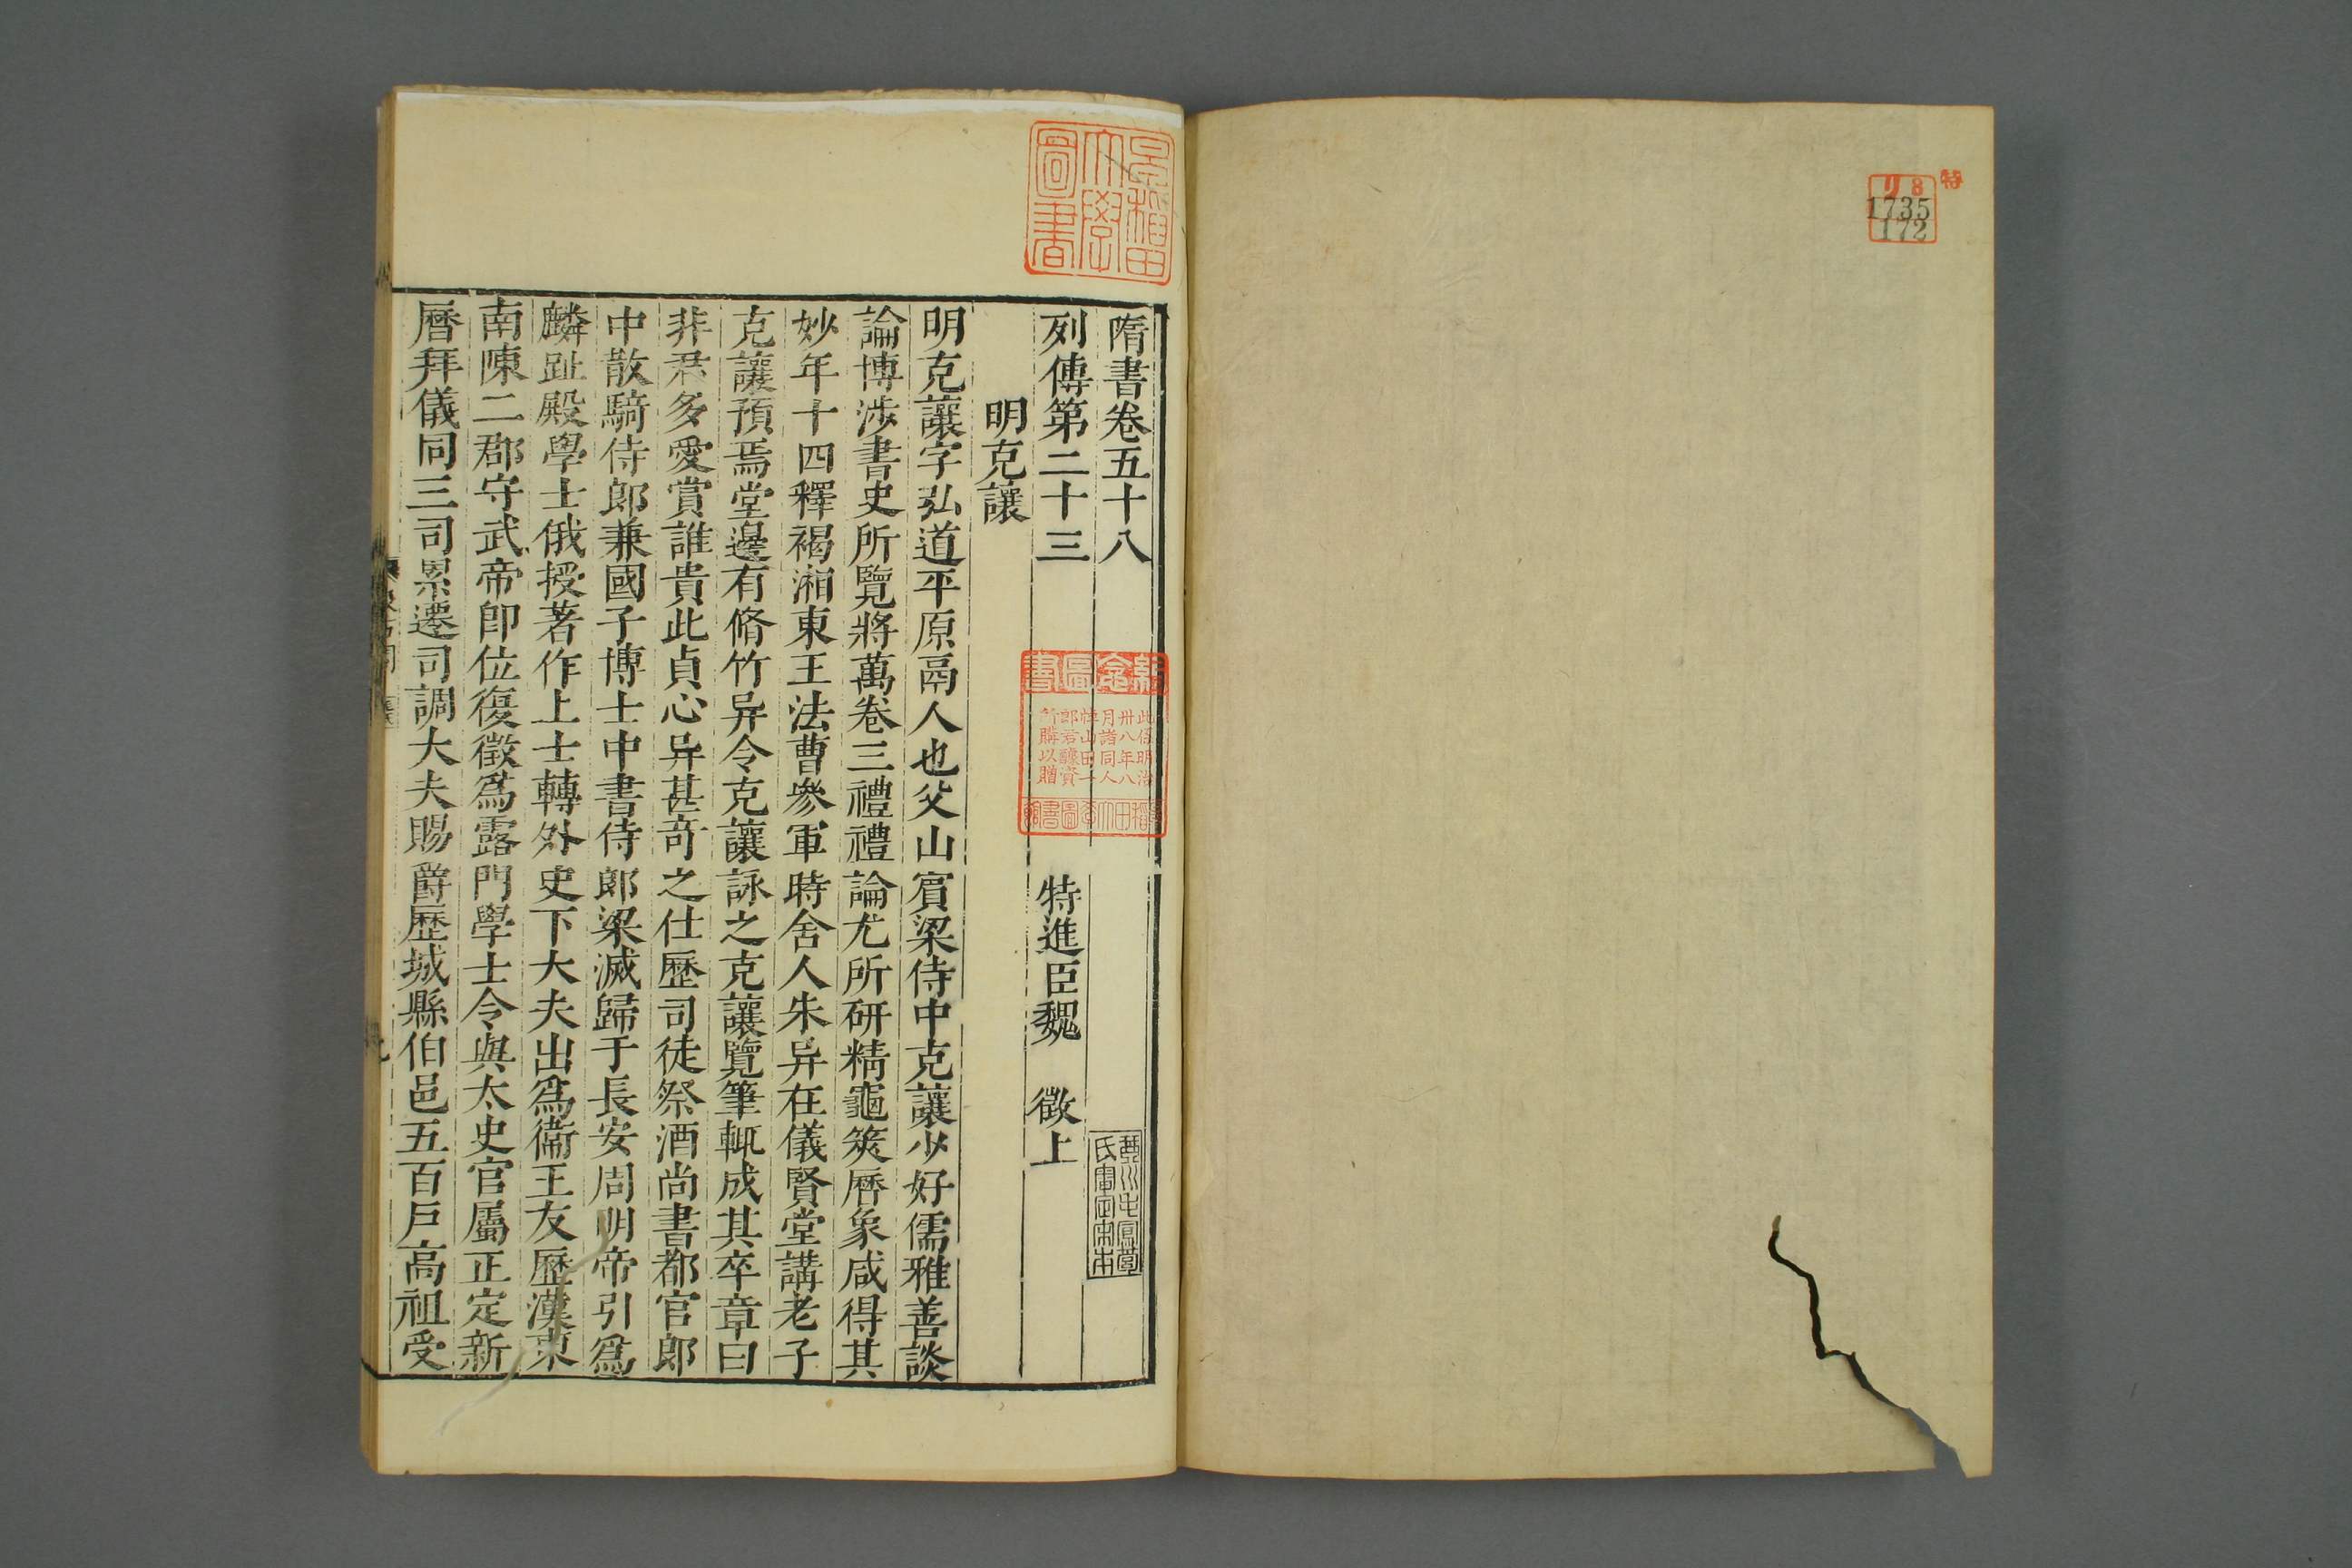 特
リ8
1735
172
早稲田
大學
圖書
隋書卷五十八
琴川毛鳳苞
氏審定宋本
列傳第二十三
特進臣魏 徵上
明克讓
明克讓字弘道平原鬲人也父山賓梁侍中克讓少好儒雅善談
論博涉書史所覽將萬卷三禮禮論尤所研精龜筴曆象咸得其
妙年十四釋褐湘東王法曹參軍時舍人朱异在儀賢堂講老子
克讓預焉堂邊有脩竹异令克讓詠之克讓覽筆輒成其卒章曰
非君多愛賞誰貴此貞心异甚竒之仕歷司徒祭酒尚書都官郎
中散騎侍郎兼國子博士中書侍郎梁滅歸于長安周明帝引爲
麟趾殿學士俄授著作上士轉外史下大夫出爲衞王友歷漢東
南陳二郡守武帝卽位復徵爲露門學士令與太史官屬正定新
曆拜儀同三司累遷司調大夫賜爵歷城縣伯邑五百戶高祖受
圖書
此 明治
卅八年八
月諸同人
山田
郎君醵資
所購以贈